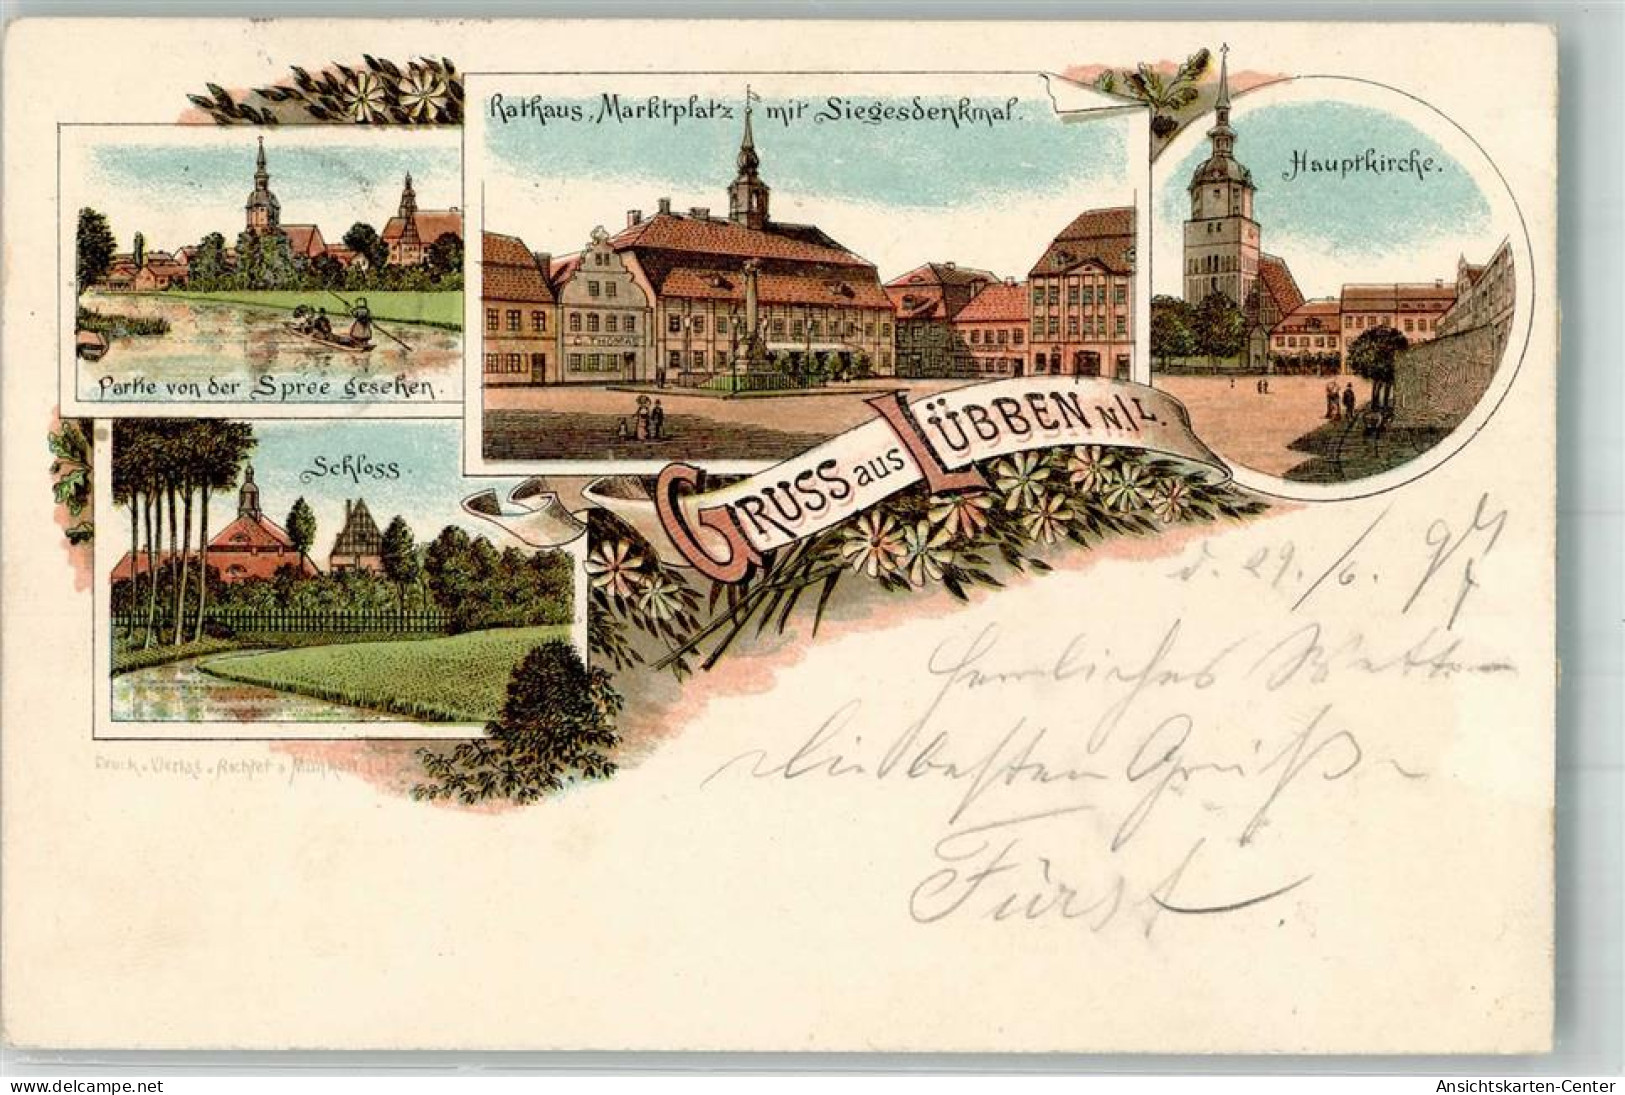 Rathaus, Marktplatz mit Siegesdenkmal.
Hauptkirche.
C. THOMAS
Partie von der Spree gesehen.
Schloss.
GRUSS aus LÜBBEN N./L.
Druck u. Verlag v. Richter &
d. 29./6. 97
Herrliches Wetter
die besten Grüße
Fürst.
delcampe.net
Ansichtskarten-Center